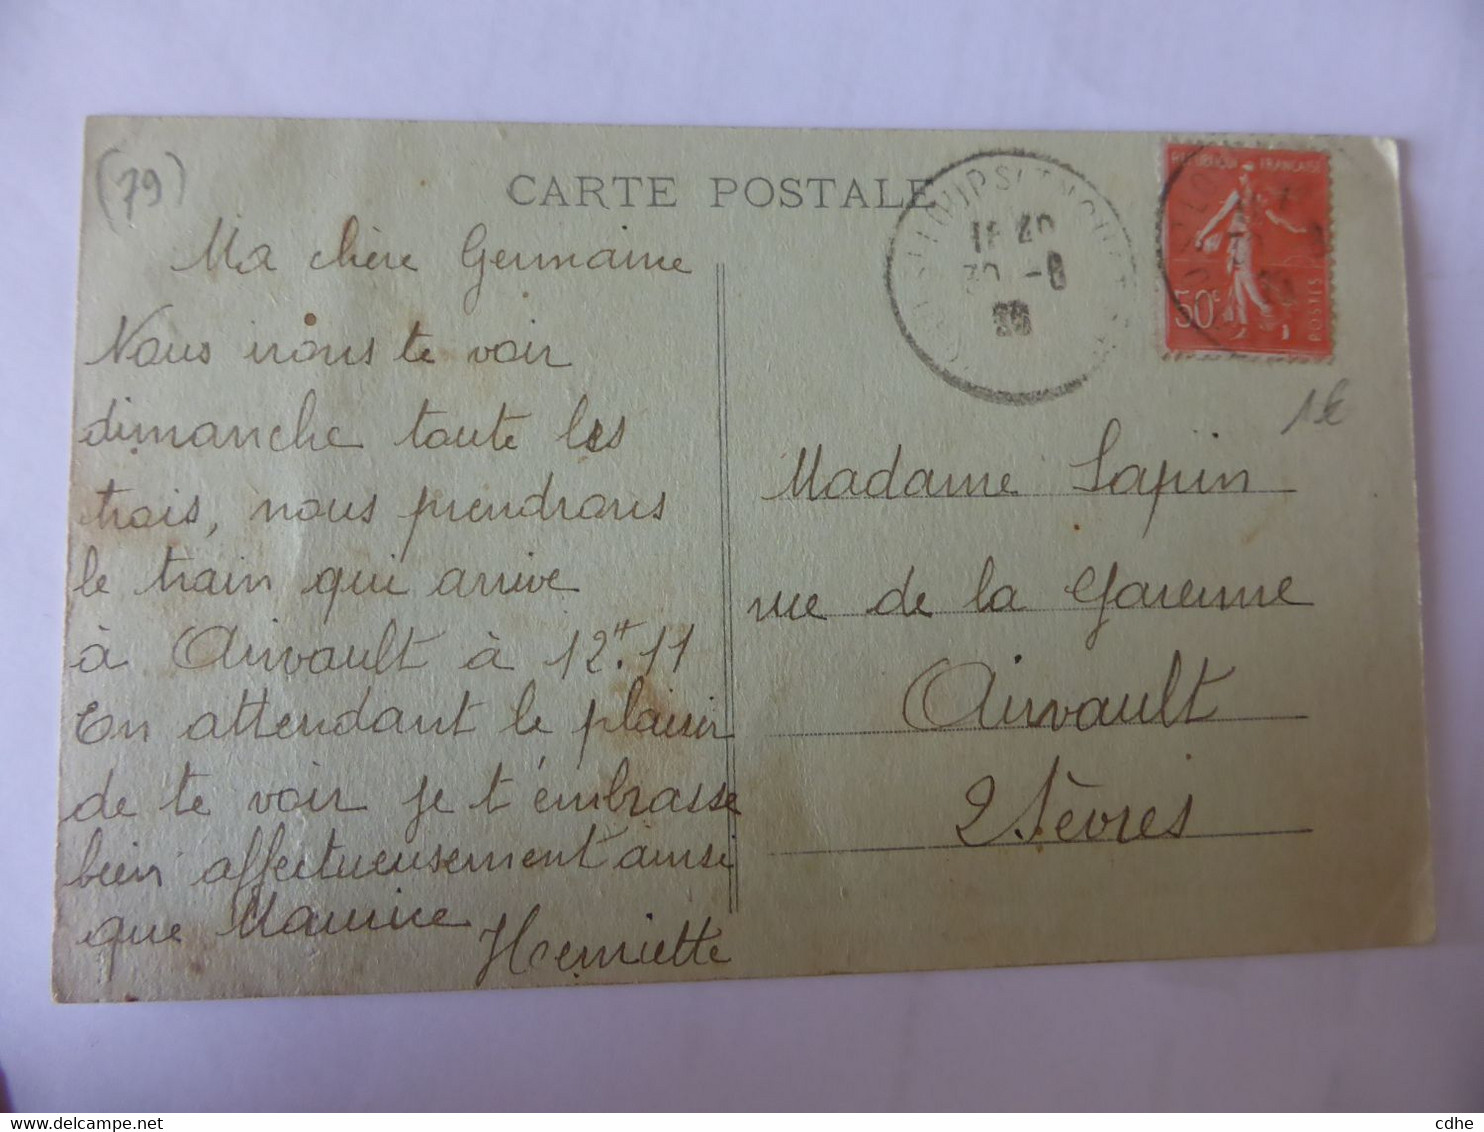 (79)
CARTE POSTALE
REPUBLIQUE FRANCAISE
50c
POSTES
30 -8
1€
Ma chère Germaine
Nous irons te voir
dimanche toute les
trois, nous prendrons
le train qui arrive
à Airvault à 12H.11
En attendant le plaisir
de te voir je t'embrasse
bien affectueusement ainsi
que Maurice
Henriette
Madame Sapin
rue de la Garenne
Airvault
2 Sèvres
cdhe